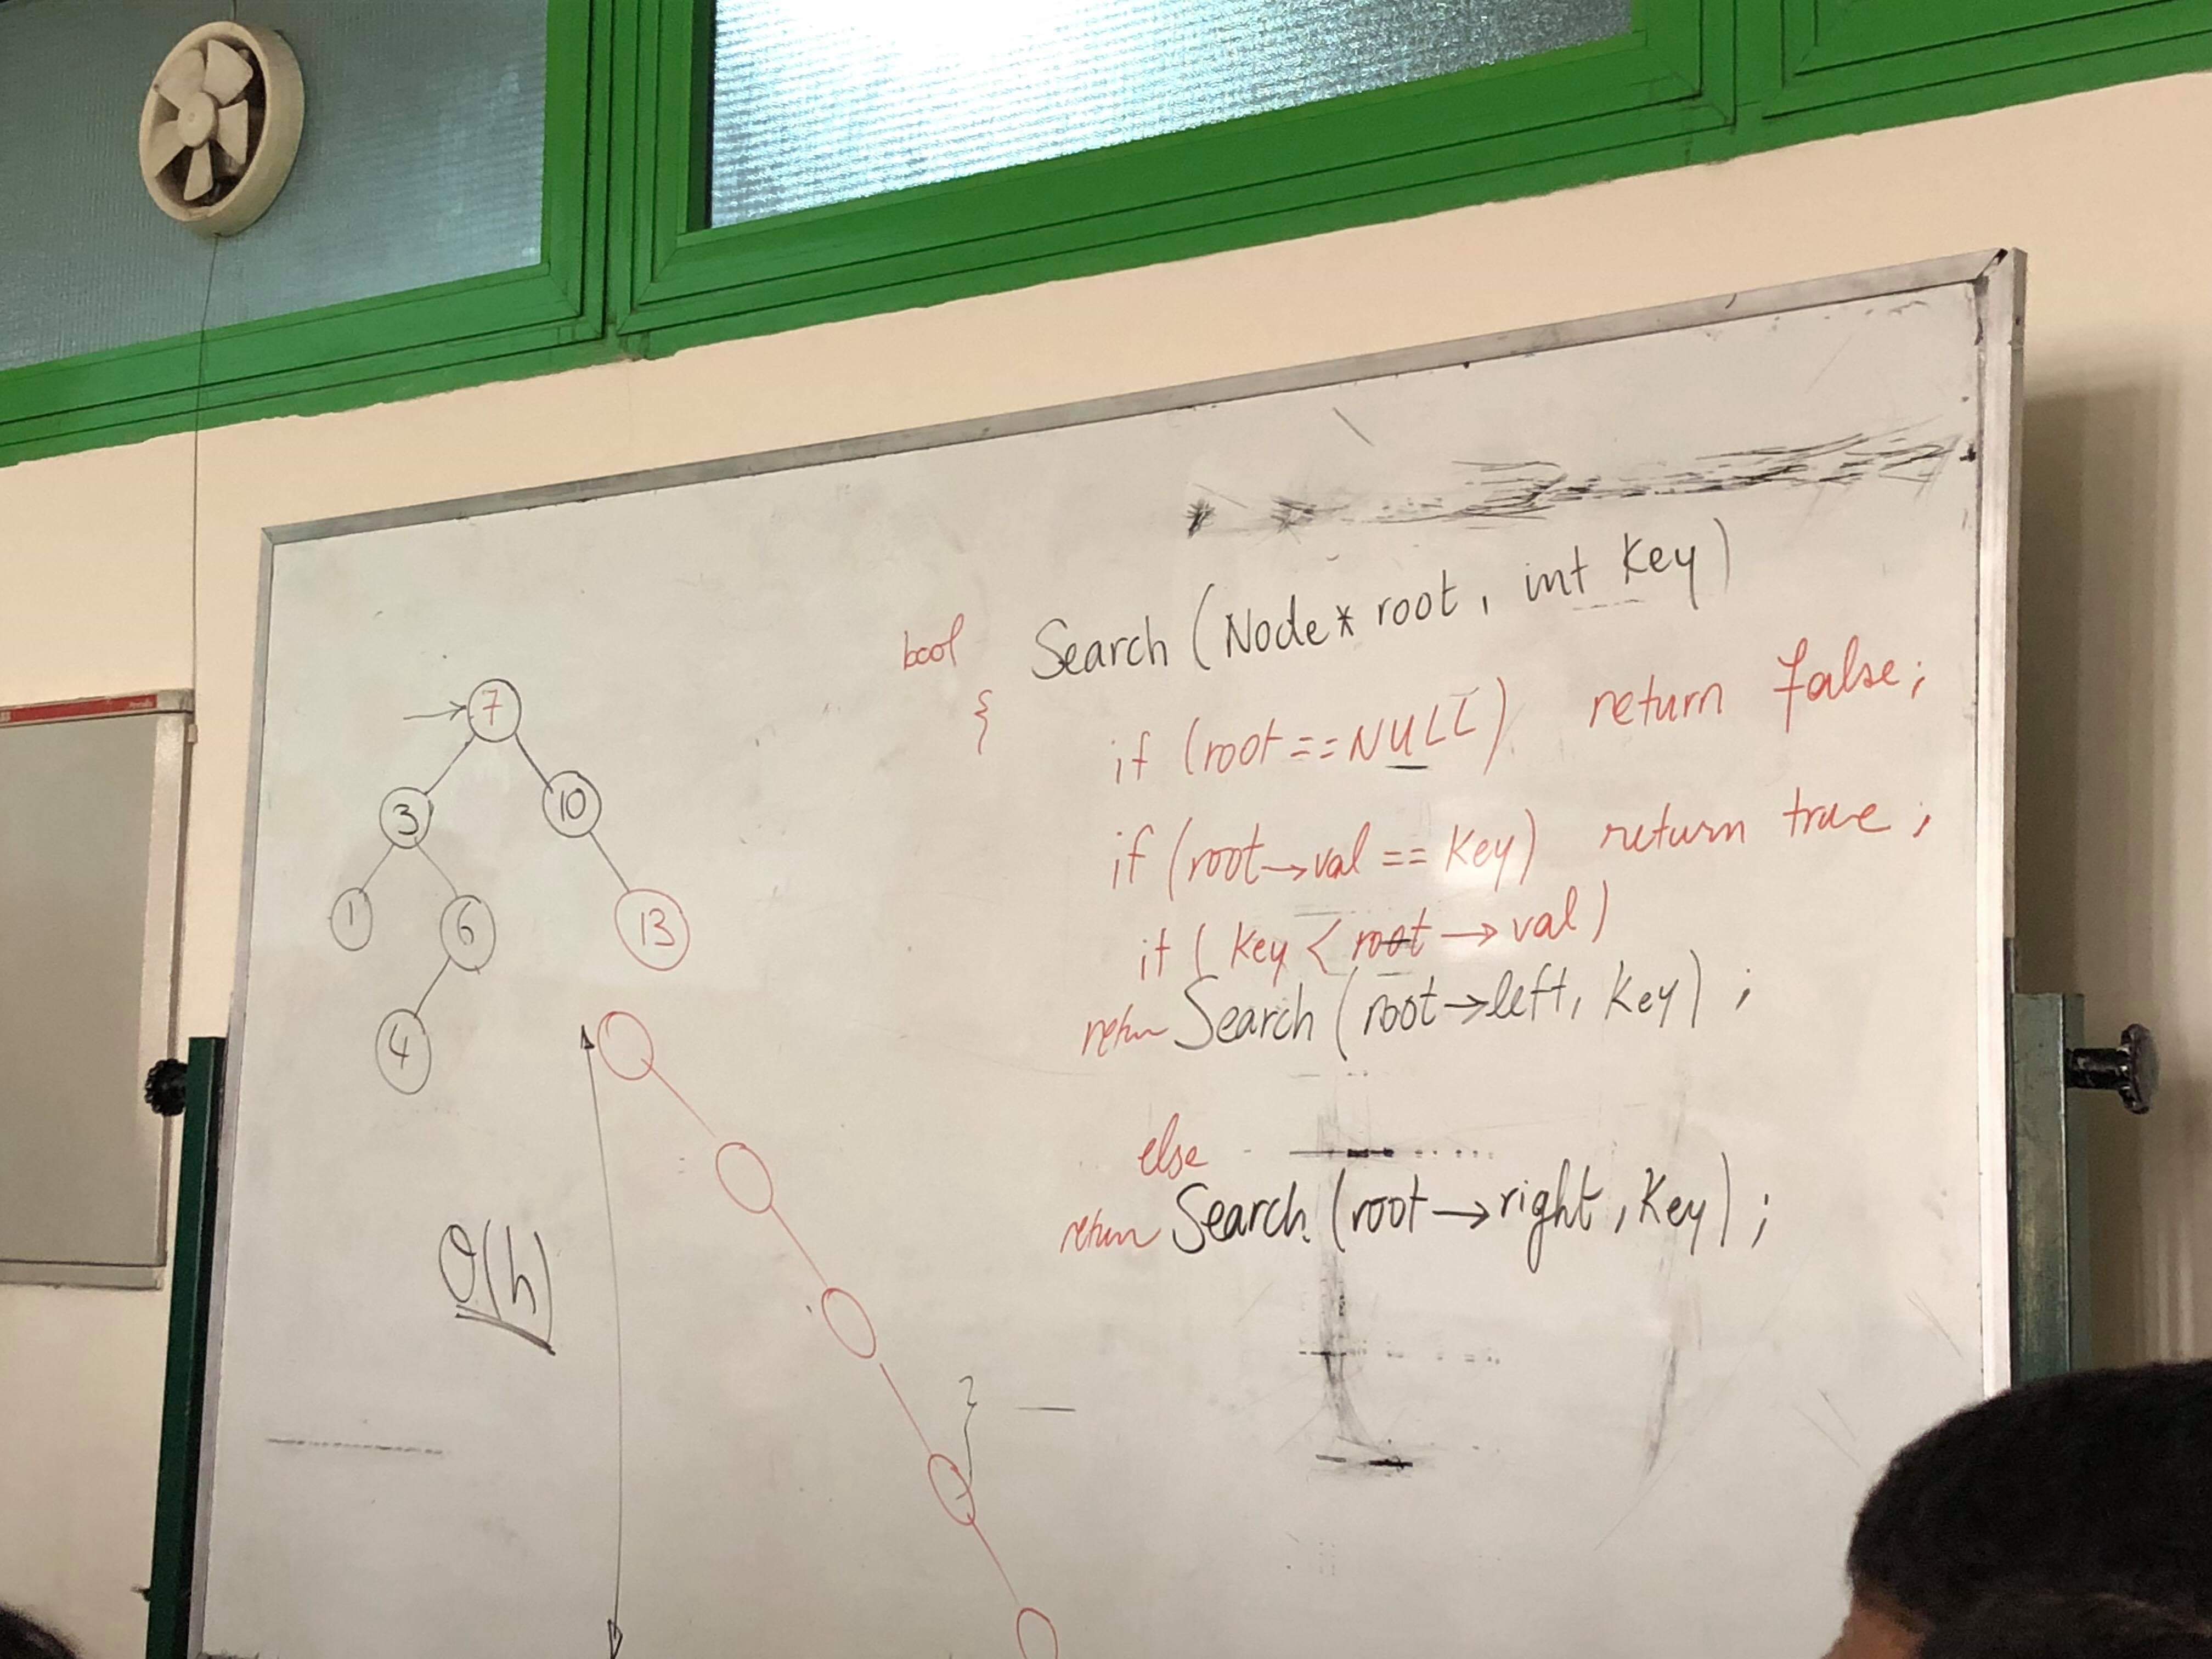 bool Search (Node* root, int key)
{
if (root==NULL) return false;
if (root→val == key) return true;
if (key < root→val)
return Search (root→left, key);
else
return Search (root→right, key);
}
7
3 10
1 6 13
4
O(h)